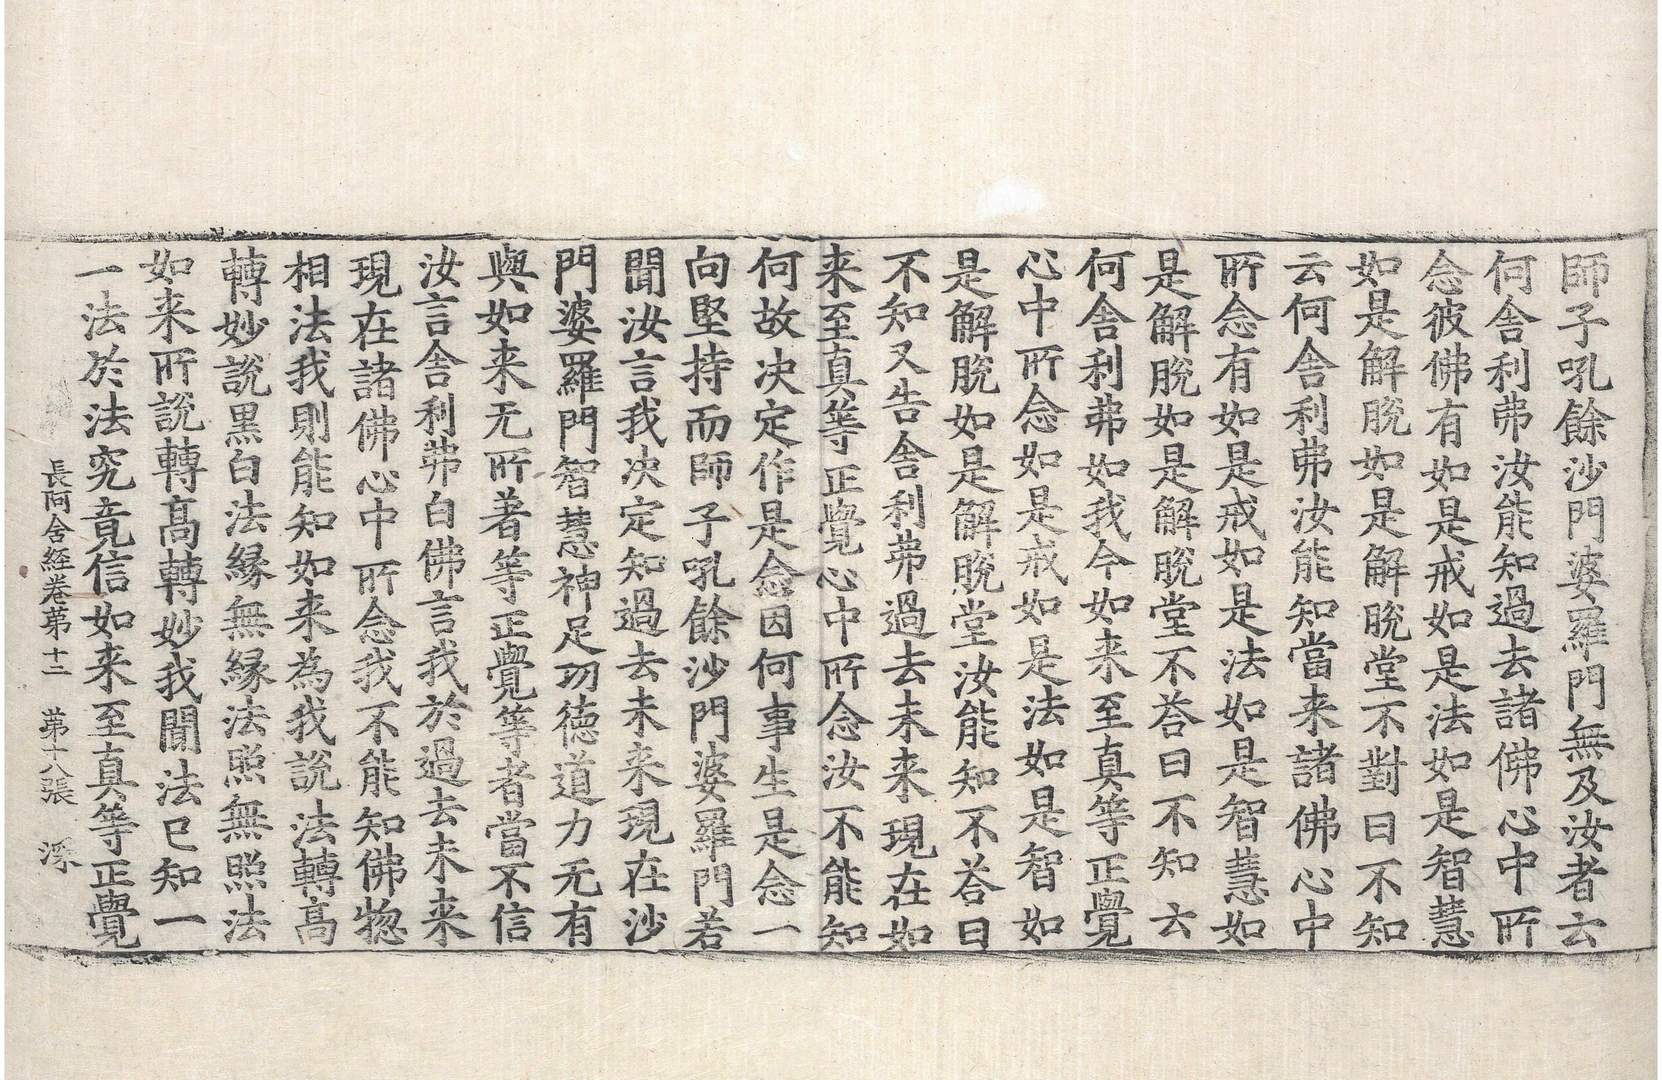 師子吼餘沙門婆羅門無及汝者云
何舍利弗汝能知過去諸佛心中所
念彼佛有如是戒如是法如是智慧
如是解脫如是解脫堂不對曰不知
云何舍利弗汝能知當来諸佛心中
所念有如是戒如是法如是智慧如
是解脫如是解脫堂不荅曰不知云
何舍利弗如我今如来至真等正覺
心中所念如是戒如是法如是智如
是解脫如是解脫堂汝能知不荅曰
不知又告舍利弗過去未来現在如
来至真等正覺心中所念汝不能知
何故決定作是念因何事生是念一
向堅持而師子吼餘沙門婆羅門若
聞汝言我決定知過去未来現在沙
門婆羅門智慧神足功德道力无有
與如来无所著等正覺等者當不信
汝言舍利弗白佛言我於過去未来
現在諸佛心中所念我不能知佛惣
相法我則能知如来為我說法轉高
轉妙說黑白法緣無緣法照無照法
如来所說轉高轉妙我聞法已知一
一法於法究竟信如来至真等正覺
長阿含經卷第十二　第十八張　深